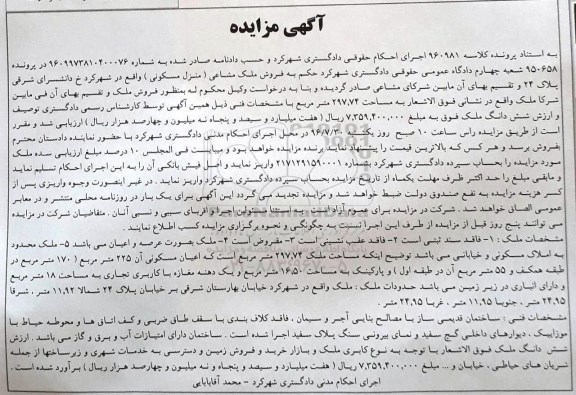 آگهی مزایده
به استناد پرونده کلاسه ۹۶۰۹۸۱ اجرای احکام حقوقی دادگستری شهرکرد و حسب دادنامه صادر شده به شماره ۹۶۰۹۹۷۳۸۱۰۴۰۰۰۷۶ در پرونده
۹۵۰۶۵۸ شعبه چهارم دادگاه عمومی حقوقی دادگستری شهرکرد حکم به فروش ملک مشاعی ( منزل مسکونی ) واقع در شهرکرد خ دانشسرای شرقی
پلاک ۲۴ و تقسیم بهای آن مابین شرکای مشاعی صادر گردیده و بنا به درخواست وکیل محکوم له بمنظور فروش ملک و تقسیم بهای آن فی مابین
شرکا ملک واقع در نشانی فوق الاشعار به مساحت ۲۹۷,۷۴ متر مربع با مشخصات فنی ذیل همین آگهی توسط کارشناس رسمی دادگستری توصیف
و ارزش شش دانگ ملک فوق به مبلغ ۷,۳۵۹,۴۰۰,۰۰۰ ریال ( هفت میلیارد و سیصد و پنجاه و نه میلیون و چهارصد هزار ریال ) ارزیابی شد و مقرر
است از طریق مزایده راس ساعت ۱۰ صبح روز یکشنبه ۹۶/۷/۳۰ در محل اجرای احکام مدنی دادگستری شهرکرد با حضور نماینده دادستان محترم
بفروش برسد و هر کس که بالاترین قیمت را پیشنهاد نماید برنده مزایده خواهد بود و میبایست فی المجلس ۱۰ درصد مبلغ ارزیابی سده ملک
مورد مزایده را بحساب سپرده دادگستری شهرکرد بشماره ۲۱۷۱۲۹۱۵۹۰۰۰۱ واریز نماید و اصل فیش بانکی آن را به این اجرای احکام تسلیم نماید
و مابقی مبلغ را حد اکثر ظرف مهلت یکماه از تاریخ مزایده بحساب سپرده دادگستری شهرکرد واریز نماید . در غیر اینصورت وجوه واریزی پس از
کسر هزینه مزایده به نفع صندوق دولت ضبط خواهد شد و مزایده تجدید می گردد این آگهی برای یک بار در روزنامه محلی منتشر و در معابر
عمومی الصاق خواهد شد . شرکت در مزایده برای عموم آزاد است و اقربای سببی و نسبی آنان . متقاضیان شرکت در مزایده
می توانند پنج روز قبل از مزایده از طرف این اجرا نسبت به چگونگی و نحوه برگزاری مزایده کسب اطلاع نمایند .
مشخصات ملک : ۱- فاقد سند ثبتی است ۲- فاقد عقب نشینی است ۳- مفروض است ۴- ملک بصورت عرصه و اعیان می باشد ۵- ملک محدود
به املاک مسکونی و خیابانی می باشد توضیح اینکه مساحت ملک ۲۹۷,۷۴ متر مربع است که اعیان مسکونی آن ۲۲۵ متر مربع ( ۱۷۰ متر مربع در
طبقه همکف و ۵۵ متر مربع آن در طبقه اول ) و پارکینگ به مساحت ۱۶,۵۰ متر مربع و یک دهنه مغازه با کاربری تجاری به مساحت ۱۸ متر مربع
و دارای انباری در زیر زمین می باشد حدودات ملک : ملک واقع در شهرکرد خیابان بهارستان شرقی بر خیابان پلاک ۲۴ شمالا ۱۱,۹۲ متر . شرقا
۲۴,۹۵ متر . جنوبا ۱۱,۹۵ متر . غربا ۲۴,۹۵ متر .
مشخصات فنی : ساختمان قدیمی ساز با مصالح بنایی آجر و سیمان ، فاقد کلاف بندی با سقف طاق ضربی و کف اتاق ها و محوطه حیاط با
موزاییک . دیوارهای داخلی گچ سفید و نمای بیرونی سنگ پلاک سفید اجرا شده است . ساختمان دارای امتیازات آب و برق و گاز می باشد . ارزش
شش دانگ ملک فوق الاشعار با توجه به نوع کابری ملک و بازار خرید و فروش زمین و دسترسی به خدمات شهری و زیرساختها از جمله
شریان های حیاطی . خیابان و ... مبلغ ۷,۳۵۹,۴۰۰,۰۰۰ ریال ( هفت میلیارد و سیصد و پنجاه و نه میلیون و چهارصد هزار ریال ) برآورد شده است .
اجرای احکام مدنی دادگستری شهرکرد - محمد آقابابایی